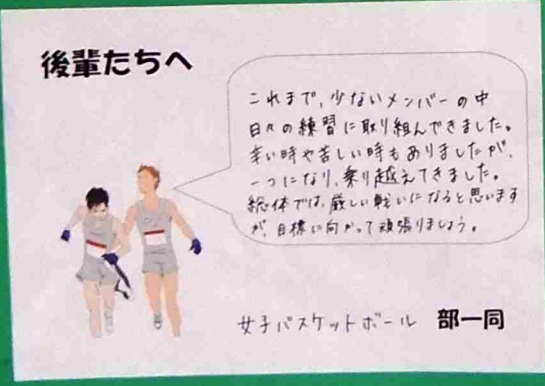 後輩たちへ
これまで、少ないメンバーの中
日々の練習に取り組んできました。
辛い時や苦しい時もありましたが、
一つになり、乗り越えてきました。
総体では、厳しい戦いになると思います
が、目標に向かって頑張りましょう。
女子バスケットボール 部一同